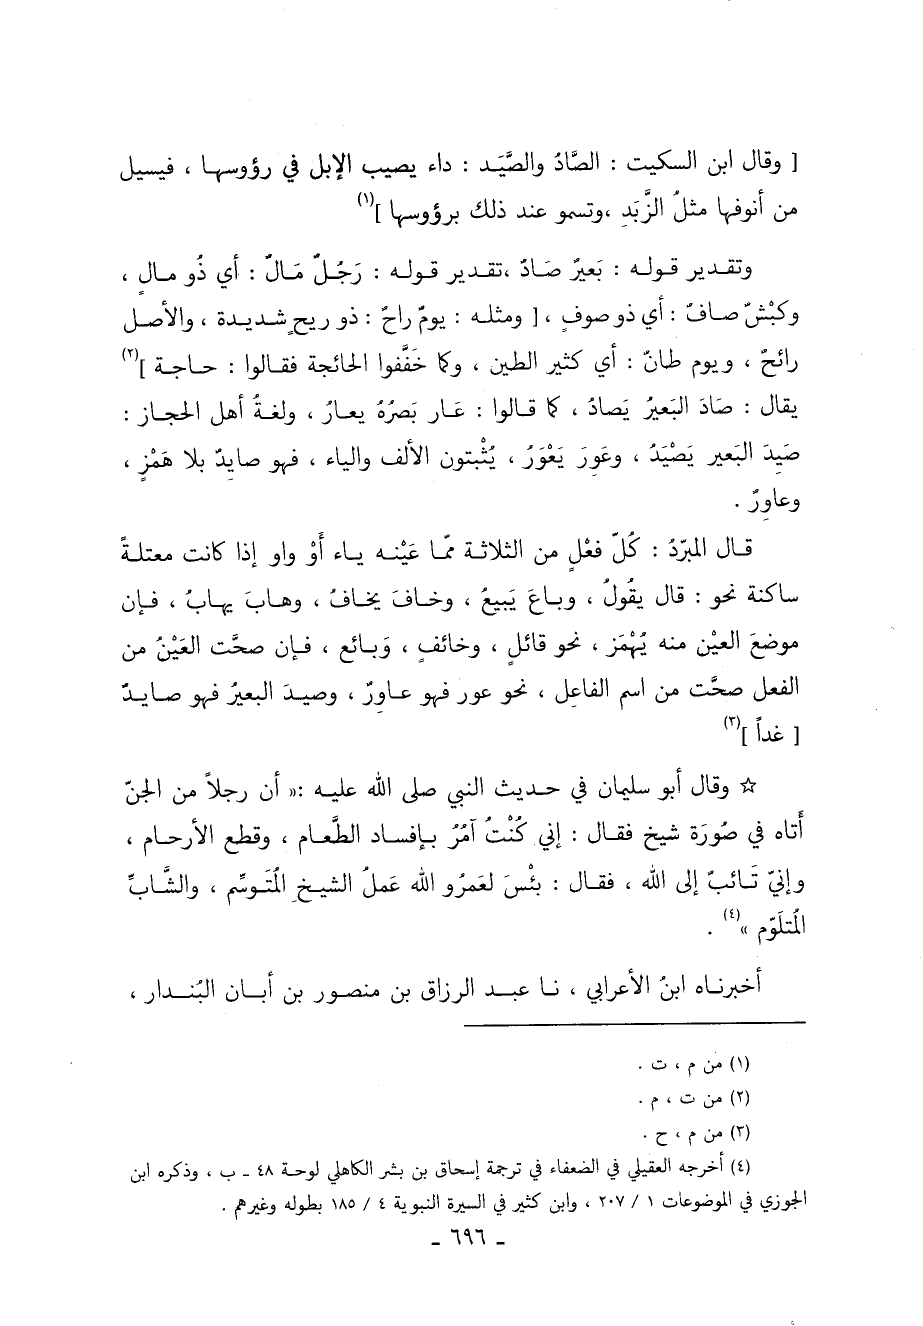 [ وقال ابن السكيت : الصَّادُ والصَّيَد : داء يصيب الإبل في رؤوسها ، فيسيل
من أنوفها مثلُ الزَّبَدِ ،وتسمو عند ذلك برؤوسها ](١)
وتقدير قوله : بَعيرٌ صَادٌ ،تقدير قوله : رَجُلٌ مَالٌ : أي ذُو مالٍ ،
وكبْشٌ صافٌ : أي ذو صوفٍ ،[ ومثله : يومٌ راحٌ : ذو ريحٍ شديدة ، والأصل
رائحٌ ، ويوم طانٌ : أي كثير الطين ، وكما خَفَّفوا الحائجة فقالوا : حاجة ](٢)
يقال : صَادَ البَعيرُ يَصادُ ، كما قالوا : عَار بَصرُهُ يعارُ ، ولغةُ أهل الحجاز :
صَيِدَ البَعير يَصْيَدُ ، وعَوِرَ يَعْوَرُ ، يُثْبتون الألف والياء ، فهو صايِدٌ بلا هَمْزٍ ،
وعاوِرٌ .
قال المبرّدُ : كُلّ فعْلٍ من الثلاثة ممّا عَيْنه ياء أَوْ واو إذا كانت معتلةً
ساكنة نحو : قال يقُولُ ، وباعَ يَبيعُ ، وخافَ يخافُ ، وهابَ يهابُ ، فإن
موضعَ العيْن منه يُهْمَز ، نحو قائلٍ ، وخائفٍ ، وَبائع ، فإن صحَّت العَيْنُ من
الفعل صحَّت من اسم الفاعِل ، نحو عور فهو عاوِرٌ ، وصيدَ البعيرُ فهو صايدٌ
[ غداً ](٣)
☆ وقال أبو سليمان في حديث النبي صلى الله عليه :« أن رجلاً من الجنّ
أَتاه في صُورَة شيخ فقال : إني كُنْتُ آمُرُ بإفساد الطَّعام ، وقطع الأرحام ،
وإنيّ تَائبٌ إلى الله ، فقال : بئْسَ لعَمرُو الله عَملُ الشيخِ المُتَوسِّم ، والشَّابِّ
المُتلَوِّم »(٤) .
أخبرناه ابنُ الأعرابي ، نا عبد الرزاق بن منصور بن أبان البُندار ،
(١) من م ، ت .
(٢) من ت ، م .
(٣) من م ، ح .
(٤) أخرجه العقيلي في الضعفاء في ترجمة إسحاق بن بشر الكاهلي لوحة ٤٨ ـ ب ، وذكره ابن
الجوزي في الموضوعات ١ / ٢٠٧ ، وابن كثير في السيرة النبوية ٤ / ١٨٥ بطوله وغيرهم .
ـ ٦٩٦ ـ